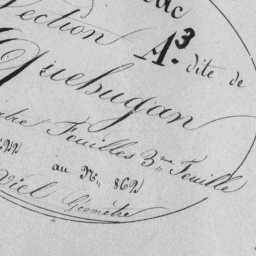 ac
Section A.3 dite de
Quehugan
Feuilles 3me Feuille
au No. 862
viel Géomètre